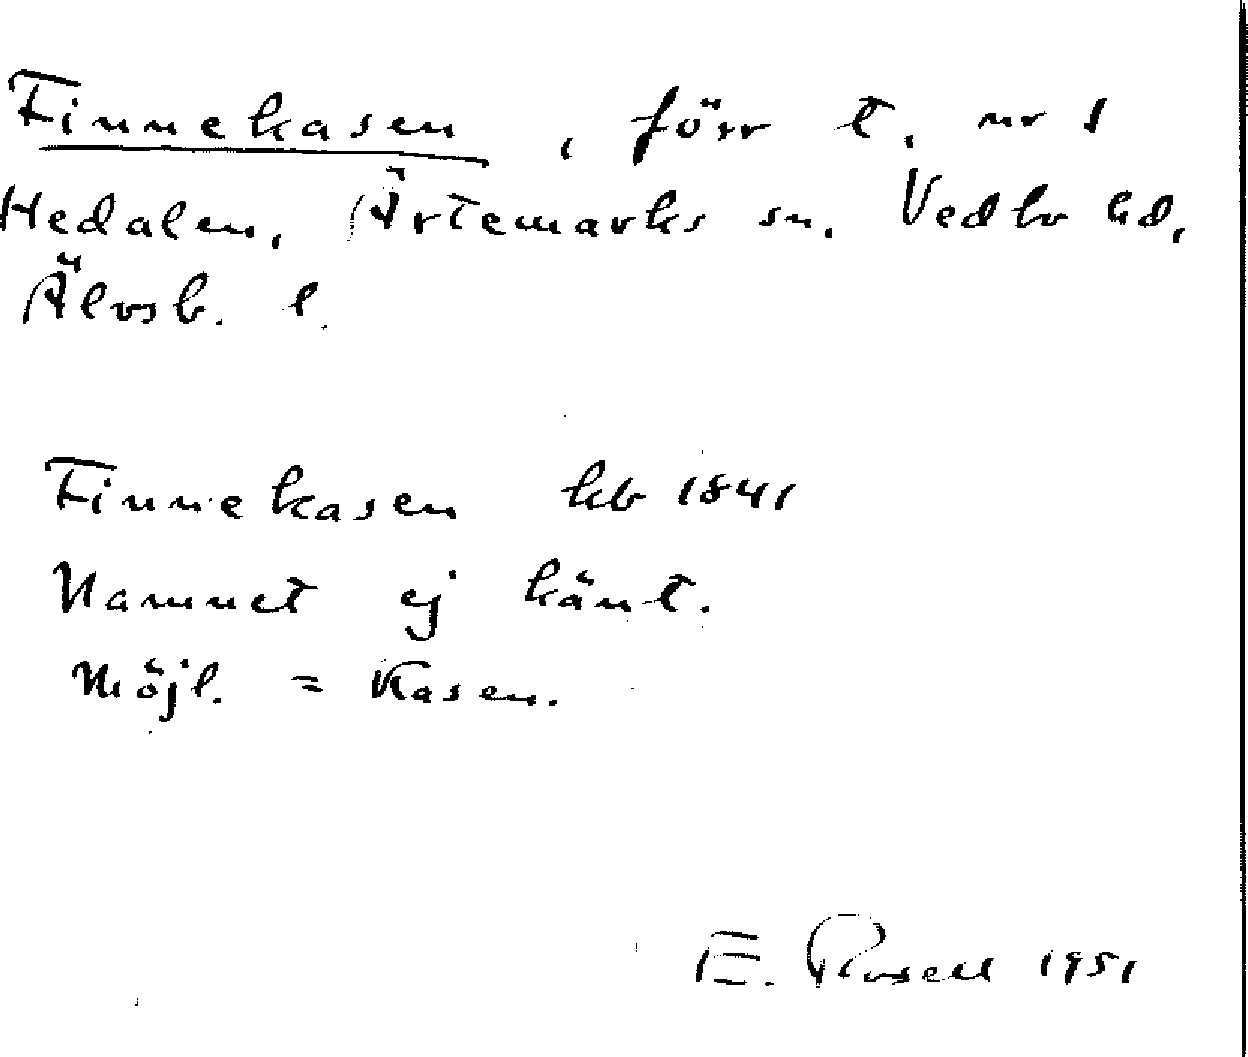 Finnekasen, förr t. nr 1
Hedalen, Ärtemarks sn. Vedbo hd,
Älvsb. l.
Finnekasen kb 1841
Namnet ej känt.
Möjl. = Kasen.
E. Rosell 1951